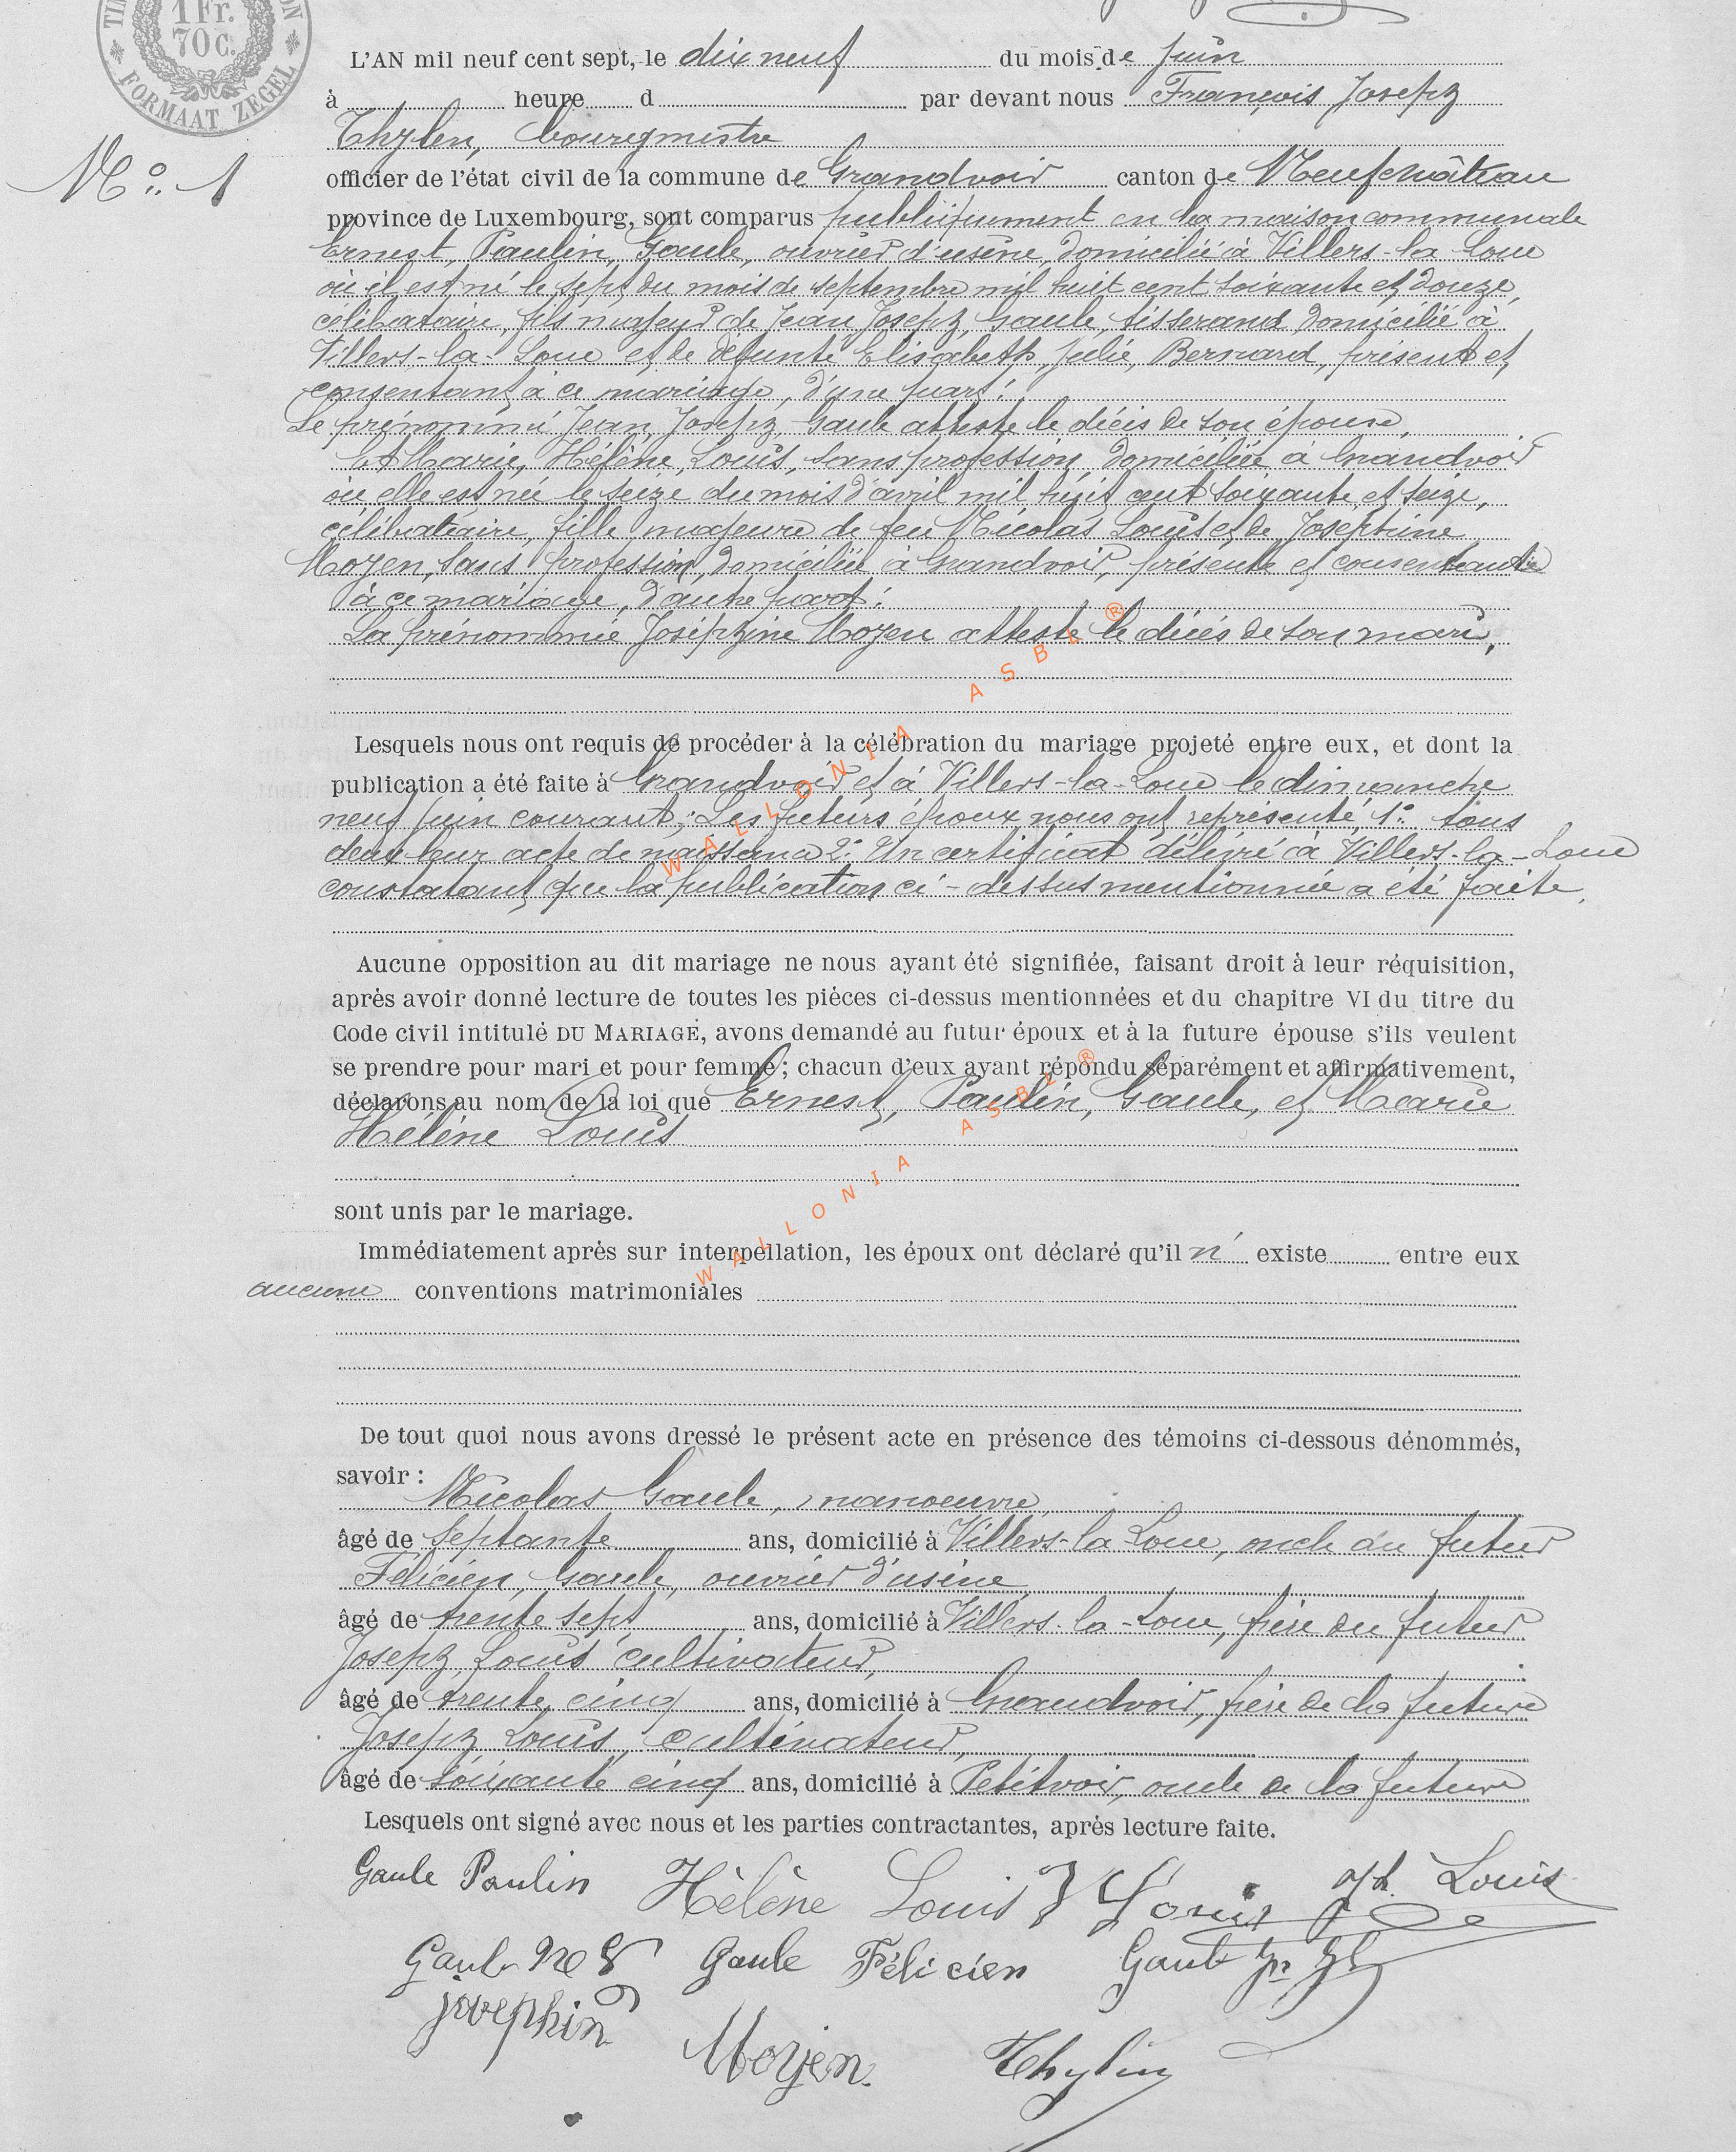 1 Fr.
70 C.
FORMAAT ZEGEL
L'AN mil neuf cent sept, le dix neuf du mois de juin
à heure d par devant nous François Joseph
Thylen, bourgmestre
N° 1
officier de l'état civil de la commune de Grandvoir canton de Neufchâteau
province de Luxembourg, sont comparus publiquement en la maison communale
Ernest, Paulin, Gaule, ouvrier d'usine, domicilié à Villers-la-Loue
où il est né le sept du mois de septembre mil huit cent soixante et douze,
célibataire, fils majeur de Jean Joseph, Gaule, tisserand domicilié à
Villers-la-Loue et de défunte Elisabeth, Julie, Bernard, présent et
consentant à ce mariage, d'une part;
Le prénommé Jean, Joseph, Gaule atteste le décès de son épouse,
Et Marie, Hélène, Louis, sans profession, domiciliée à Grandvoir
où elle est née le seize du mois d'avril mil huit cent soixante et seize,
célibataire, fille majeure de feu Nicolas Louis et de Joséphine
Moyen, sans profession, domiciliée à Grandvoir, présente et consentante
à ce mariage, d'autre part;
La prénommée Joséphine Moyen atteste le décès de son mari,
Lesquels nous ont requis de procéder à la célébration du mariage projeté entre eux, et dont la
publication a été faite à Grandvoir et à Villers-la-Loue le dimanche
neuf juin courant; Les futurs époux nous ont représenté, 1° tous
deux leur acte de naissance 2° Un certificat délivré à Villers-la-Loue
constatant que la publication ci-dessus mentionnée a été faite.
Aucune opposition au dit mariage ne nous ayant été signifiée, faisant droit à leur réquisition,
après avoir donné lecture de toutes les pièces ci-dessus mentionnées et du chapitre VI du titre du
Code civil intitulé DU MARIAGE, avons demandé au futur époux et à la future épouse s'ils veulent
se prendre pour mari et pour femme; chacun d'eux ayant répondu séparément et affirmativement,
déclarons au nom de la loi que Ernest, Paulin, Gaule, et Marie
Hélène Louis
sont unis par le mariage.
Immédiatement après sur interpellation, les époux ont déclaré qu'il n' existe entre eux
aucune conventions matrimoniales
De tout quoi nous avons dressé le présent acte en présence des témoins ci-dessous dénommés,
savoir :
Nicolas Gaule, manoeuvre,
âgé de septante ans, domicilié à Villers-la-Loue, oncle du futur
Félicien, Gaule, ouvrier d'usine
âgé de trente sept ans, domicilié à Villers-la-Loue, frère du futur
Joseph, Louis cultivateur,
âgé de trente cinq ans, domicilié à Grandvoir, frère de la future
Joseph Louis, cultivateur,
âgé de soixante cinq ans, domicilié à Petitvoir, oncle de la future
Lesquels ont signé avec nous et les parties contractantes, après lecture faite.
Gaule Paulin Hélène Louis J Louis Jph Louis
Gaule Gaule Félicien Gaule
josephin
Moyen. Thylen
WALLONIA ASBL ®
WALLONIA ASBL ®